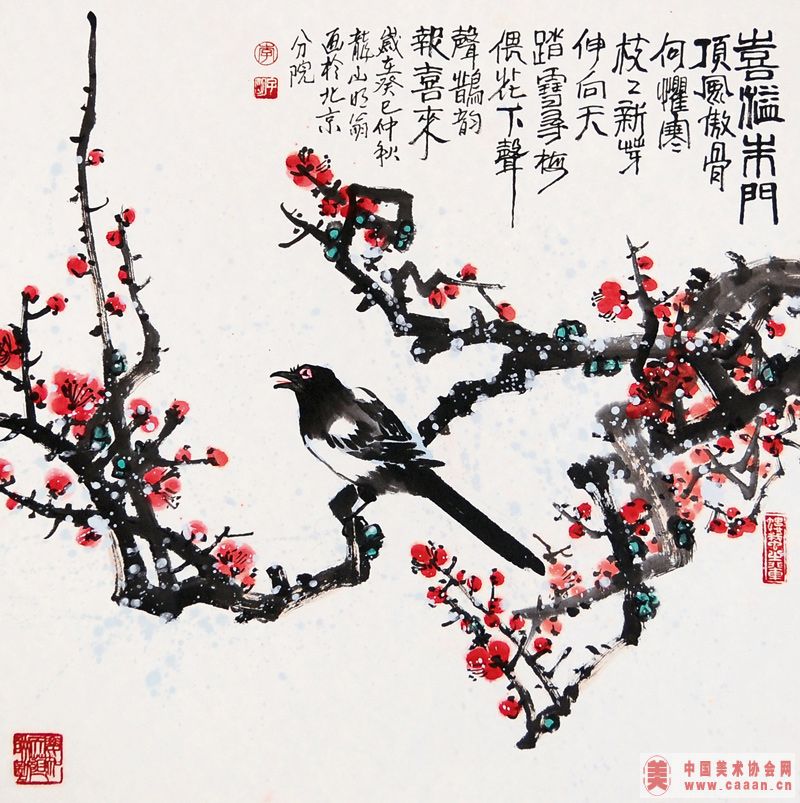 喜溢朱門
頂風傲骨
何懼寒
枝〻新芽
伸向天
踏雪尋梅
偎花下聲
聲鵲韵
報喜來
歲在癸巳仲秋
龍山翁
画於北京
分院
李
美
中国美术协会网
www.caaan.cn